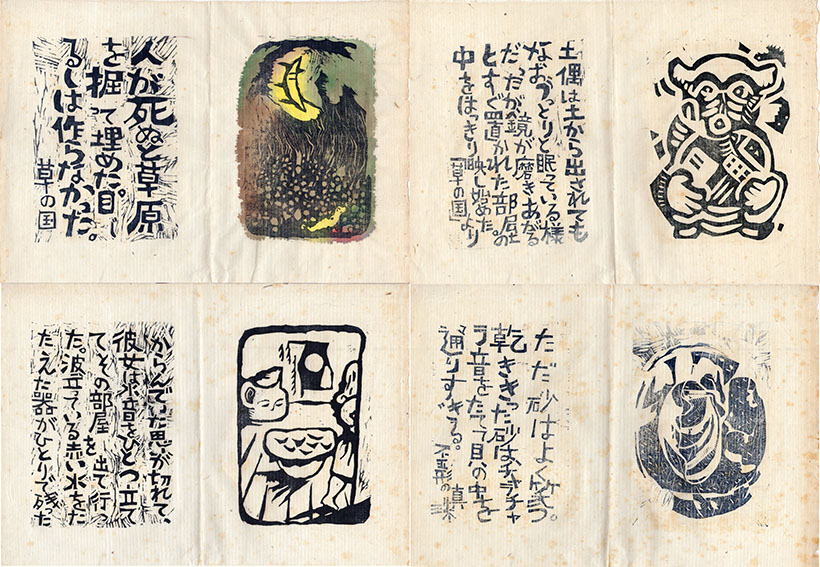 人が死ぬと草原
を掘って埋めた。目じ
るしは作らなかった。
草の国
土偶は土から出されても
なおうっとりと眠っている様
だったが鏡が磨きあがる
とすぐ置かれた部屋の
中をはっきり映し始めた。
「草の国」より
からんでいた思が切れて、
彼女は水音をひとつ立て
てその部屋を出て行っ
た。波立っている赤い水をた
たえた器がひとりで残った
ただ砂はよく笑う。
乾ききった砂は、チャラチャ
ラ音をたてて貝の中を
通りすぎる。